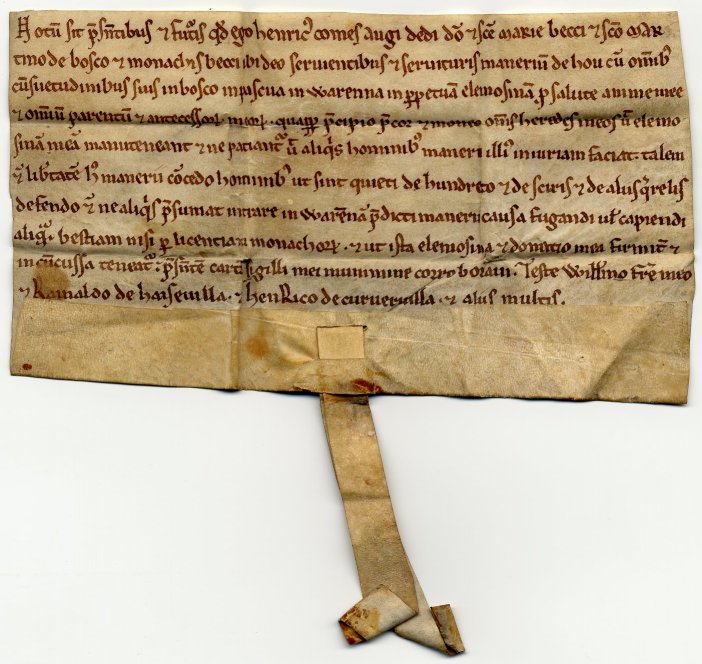 Notū sit p̄sentibus ⁊ fut̄is qd̄ ego henric᷒ comes augi dedi dō ⁊ sc̄e marie becci ⁊ sc̄o mar
tino de bosco ⁊ monachis becci ibi deo seruientibus ⁊ seruituris maneriū de hou cū om̄ib᷒
cūsuetudinibus suis in bosco in pascua in warenna in ꝑpetuam elemosinā ꝓ salute anime mee
⁊ om̄iū parentū ⁊ antecessoꝝ meoꝝ. quapp̄ p̄cipio p̄cor ⁊ moneo om̄s heredes meos ut̄ elemo
sinā meā manuteneant ⁊ ne patiant᷑ ut̄ aliq̄s hominib᷒ manerii illi᷒ iniuriam faciat. talem
⁊ libtatē hui᷒ manerii cōcedo hominib᷒ ut sint quieti de hundreto ⁊ de sciris ⁊ de aliis q̄relis
defendo ⁊ ne aliq̄s p̄sumat intrare in warennā p̄dicti manerii causa fugandi ul̄ capiendi
aliquā bestiam nisi ꝑ licentiam monachoꝝ. ⁊ ut ista elemosina ⁊ donatio mea firmit̄ ⁊
incūcussa teneat᷑. p̄sentē cartā sigilli mei munimine corroboraui. Teste Will̄mo fr̄e meo
⁊ Rainaldo de haiseuilla. ⁊ henRico de curueruilla. ⁊ aliis multis.